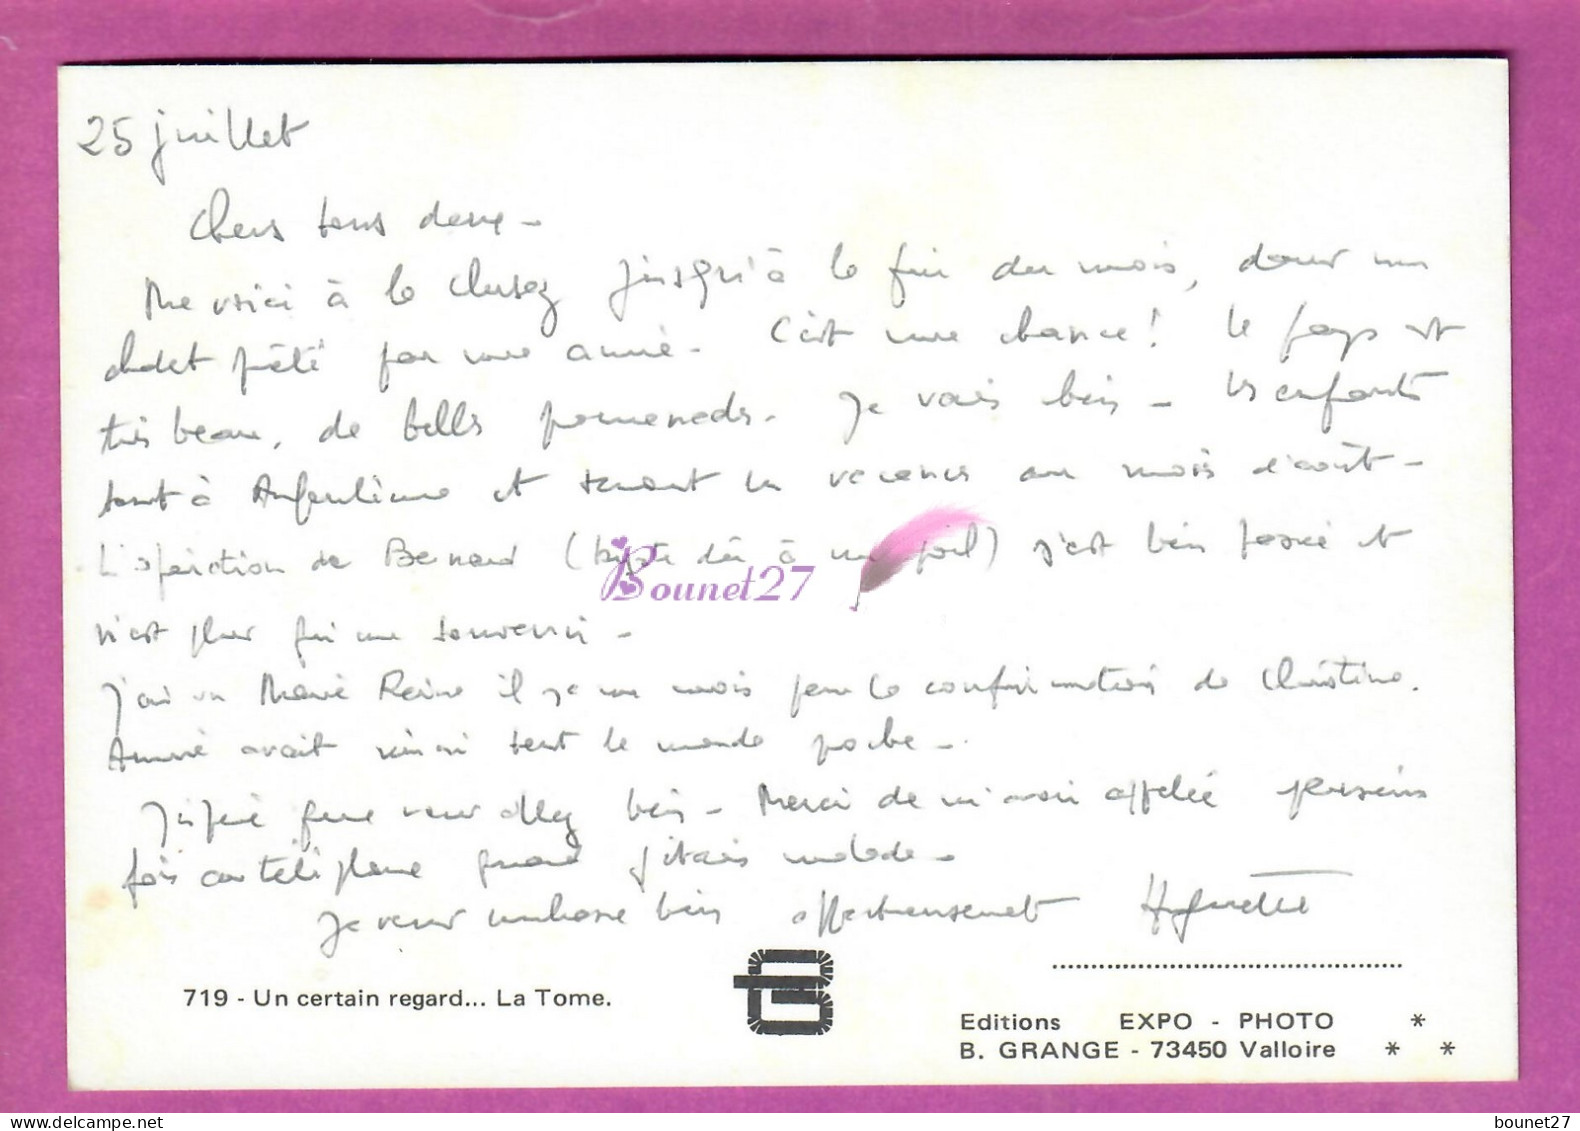 25 juillet
Chers tous deux -
Me voici à la Clusaz jusqu'à la fin du mois, dans un
chalet prêté par une amie. C'est une chance ! Le pays est
très beau, de belles promenades. Je vais bien - Les enfants
sont à Angoulême et seront en vacances au mois d'août -
L'opération de Bernard (kyste dû à un poil) s'est bien passée et
n'est plus qu'un souvenir -
J'ai vu Marie Reine il y a un mois pour la confirmation de Christine.
avait réuni tout le monde -
J'espère que vous allez bien - Merci de m'avoir appelée plusieurs
fois au téléphone quand j'étais malade -
Je vous embrasse bien affectueusement Huguette
Bounet27
719 - Un certain regard... La Tome.
Editions EXPO - PHOTO *
B. GRANGE - 73450 Valloire * *
bounet27